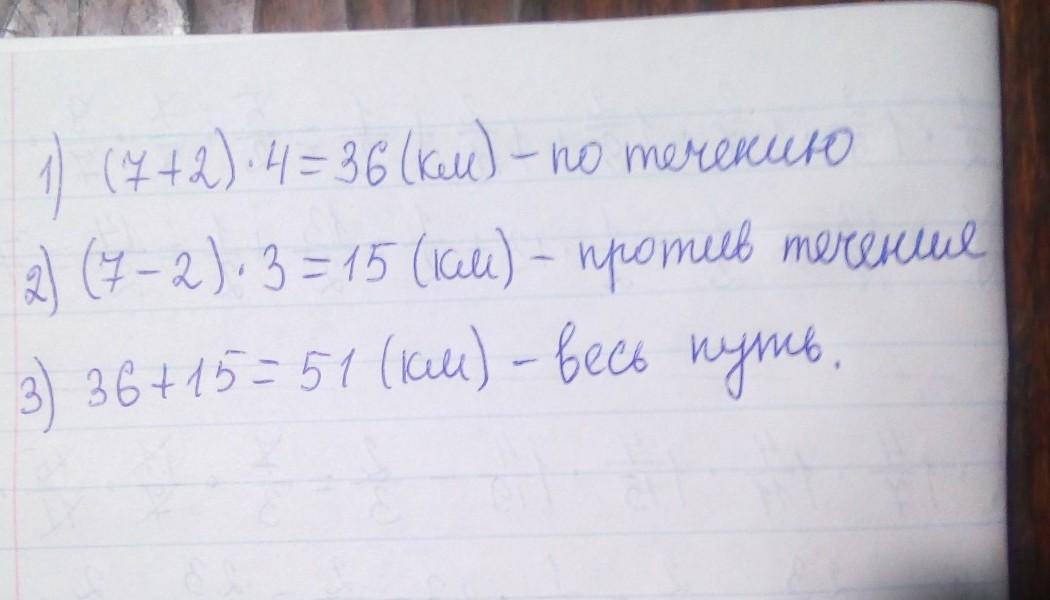 1) (7+2)·4=36(км) – по течению
2) (7-2)·3=15 (км) – против течения
3) 36+15=51 (км) – весь путь.